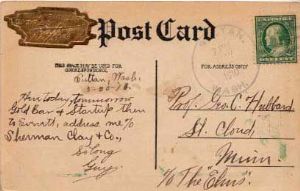 Post Card
THIS SPACE MAY BE USED FOR
CORRESPONDENCE
FOR ADDRESS ONLY
Sultan, Wash.
Am today, tomorrow
Gold Bar & Startup then
to Everett, address me c/o
Sherman Clay & Co.,
So long
Guy.
Prof. Geo. C. Hubbard
St. Cloud,
Minn.
c/o "The Elms".